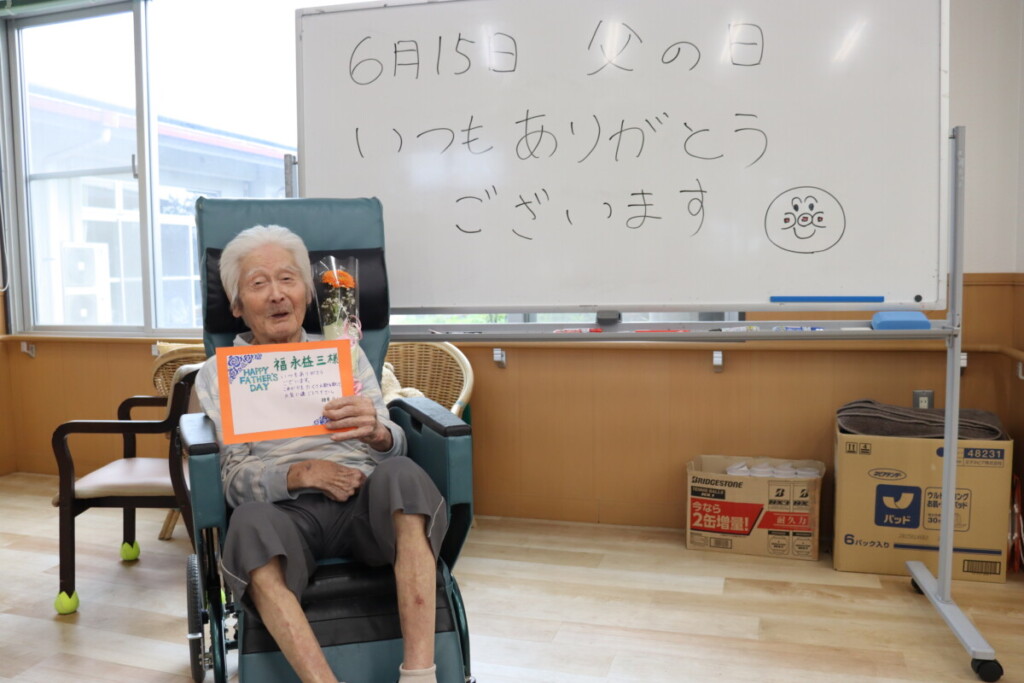 6月15日 父の日
いつもありがとう
ございます
HAPPY
FATHER'S
DAY
福永益三様
いつもありがとう
ございます
BRIDGESTONE
今なら
2缶増量!
耐久力
48231
パッド
6パック入り